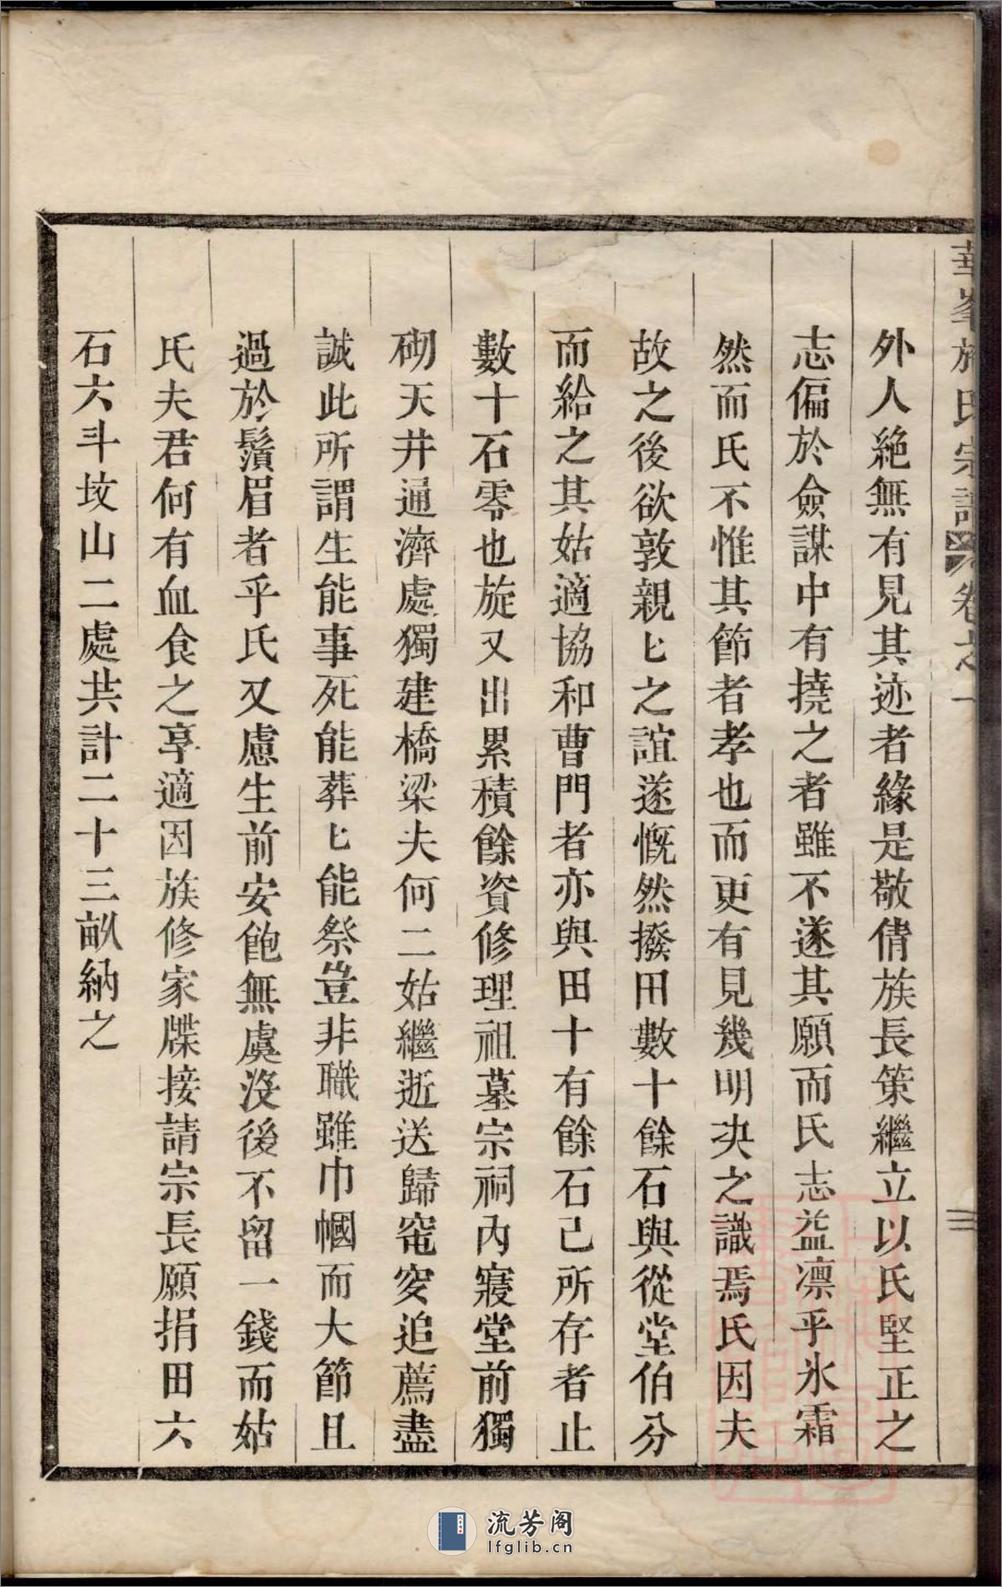 華峯施氏宗譜 卷之一
外人絶無有見其迹者緣是敬倩族長策繼立以氏堅正之
志偏於僉謀中有撓之者雖不遂其願而氏志益凛乎氷霜
然而氏不惟其節者孝也而更有見幾明决之識焉氏因夫
故之後欲敦親匕之誼遂慨然撥田數十餘石與從堂伯分
而給之其姑適協和曹門者亦與田十有餘石己所存者止
數十石零也旋又出累積餘資修理祖墓宗祠內寢堂前獨
砌天井通濟處獨建橋梁夫何二姑繼逝送歸窀穸追薦盡
誠此所謂生能事死能葬匕能祭豈非職雖巾幗而大節且
過於鬚眉者乎氏又慮生前安飽無虞沒後不留一錢而姑
氏夫君何有血食之享適因族修家牒接請宗長願捐田六
石六斗坟山二處共計二十三畝納之
流芳阁
lfglib.cn